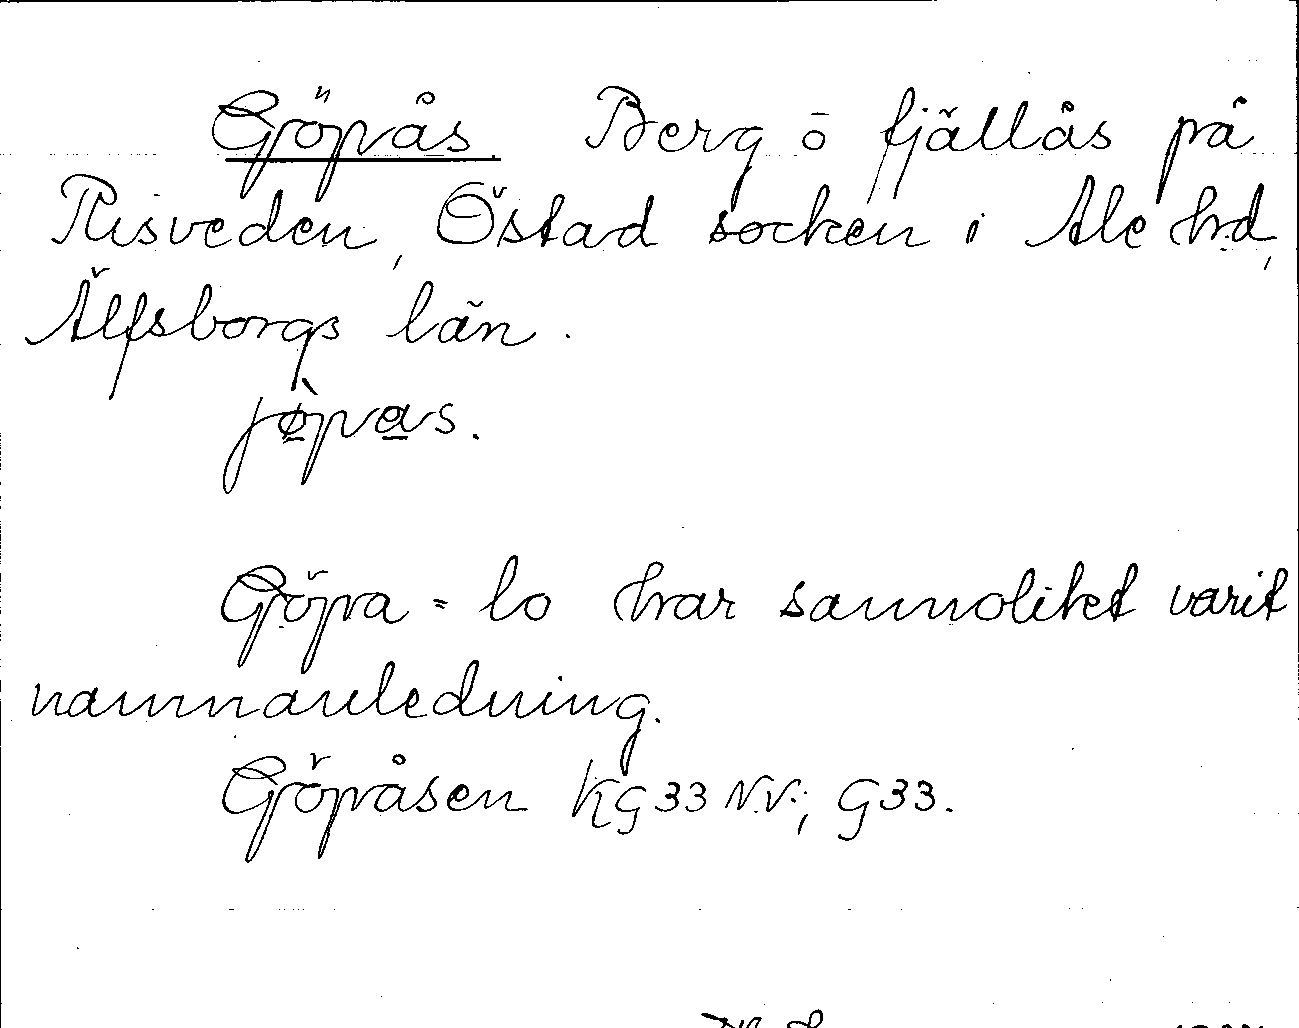 Göpås. Berg o fjällås på
Risveden, Östad socken i Ale hd,
Älfsborgs län.
jø̀pas.
Göpa = lo har sannolikt varit
namnanledning.
Göpåsen KG33 N.V.; G33.